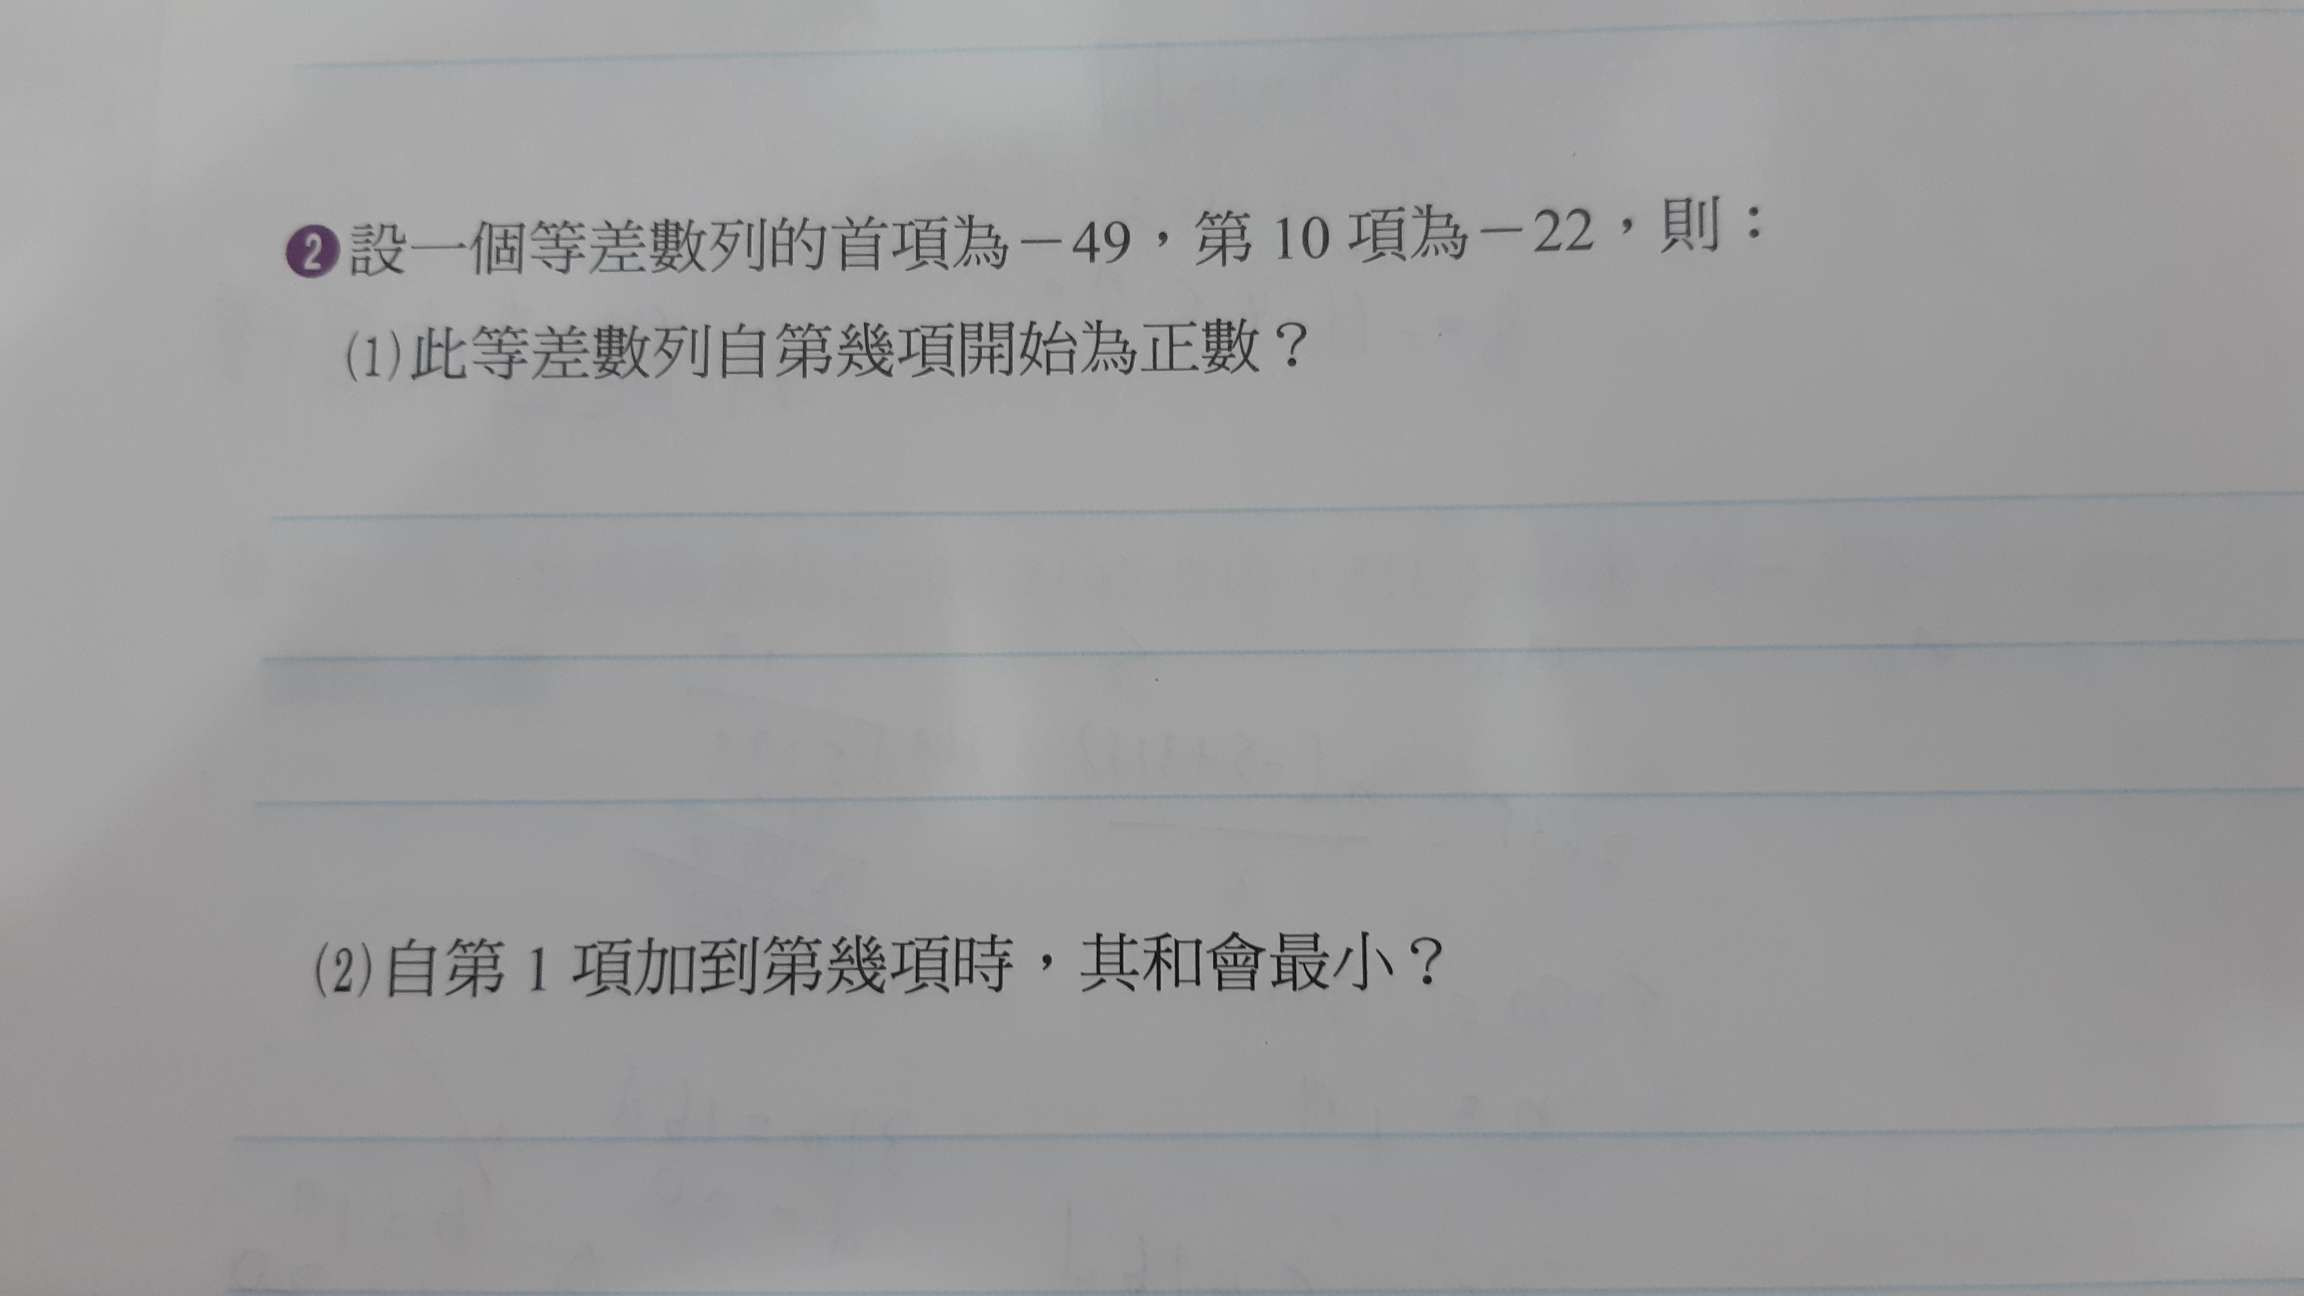 ❷設一個等差數列的首項為－49，第 10 項為－22，則：
(1)此等差數列自第幾項開始為正數？
(2)自第 1 項加到第幾項時，其和會最小？